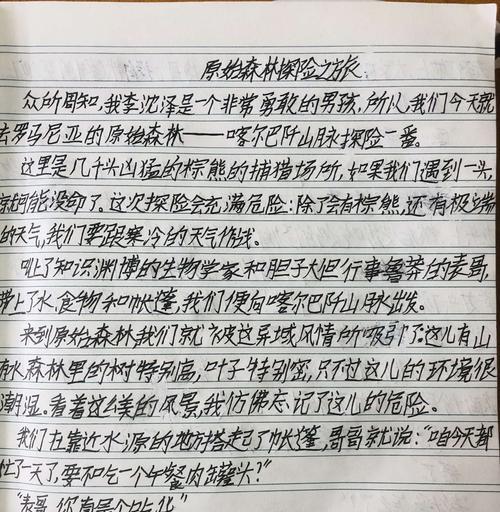 原始森林探险之旅
众所周知,我李沈泽是一个非常勇敢的男孩,所以,我们今天就
去罗马尼亚的原始森林——喀尔巴阡山脉探险一番。
这里是几千头凶猛的棕熊的捕猎场所,如果我们遇到一头,
就可能没命了。这次探险会充满危险:除了会有棕熊,还有极端
的天气,我们要跟寒冷的天气作战。
叫上了知识渊博的生物学家和胆子大但行事鲁莽的表哥,
带上了水、食物和帐篷,我们便向喀尔巴阡山脉出发。
来到原始森林,我们就被这异域风情所吸引了。这儿有山
有水,森林里的树特别高,叶子特别密,只不过这儿的环境很
潮湿。看着这么美的风景,我仿佛忘记了这儿的危险。
我们在靠近水源的地方搭起了帐篷,哥哥就说:“咱今天都
忙了一天了,要不吃一个午餐肉罐头?”
“表哥,你真是个吃货”